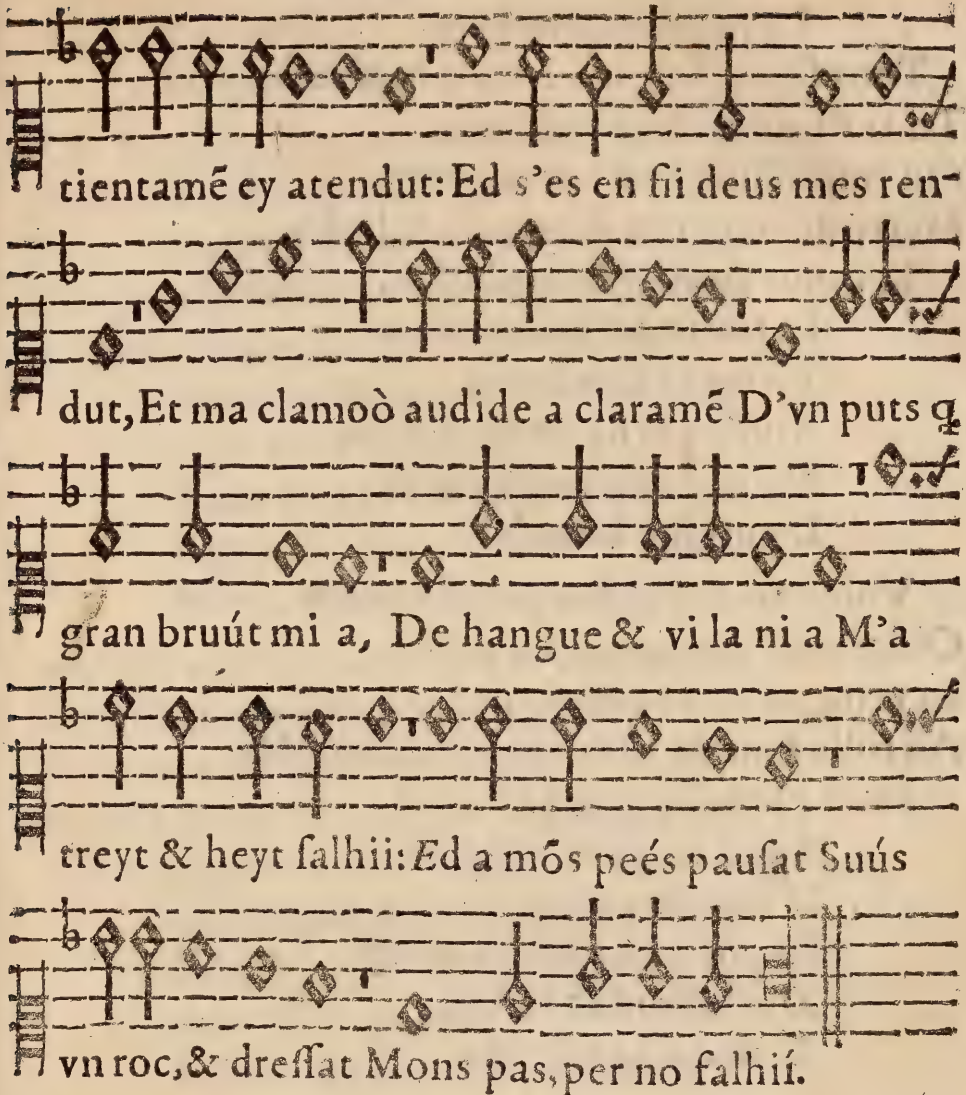 tientamē ey atendut: Ed s'es en fii deus mes ren-
dut, Et ma clamoò audide a claramē D'vn puts q̃
gran bruút mi a, De hangue & vi la ni a M'a
treyt & heyt ſalhii: Ed a mōs peés pauſat Suús
vn roc, & dreſſat Mons pas, per no falhií.